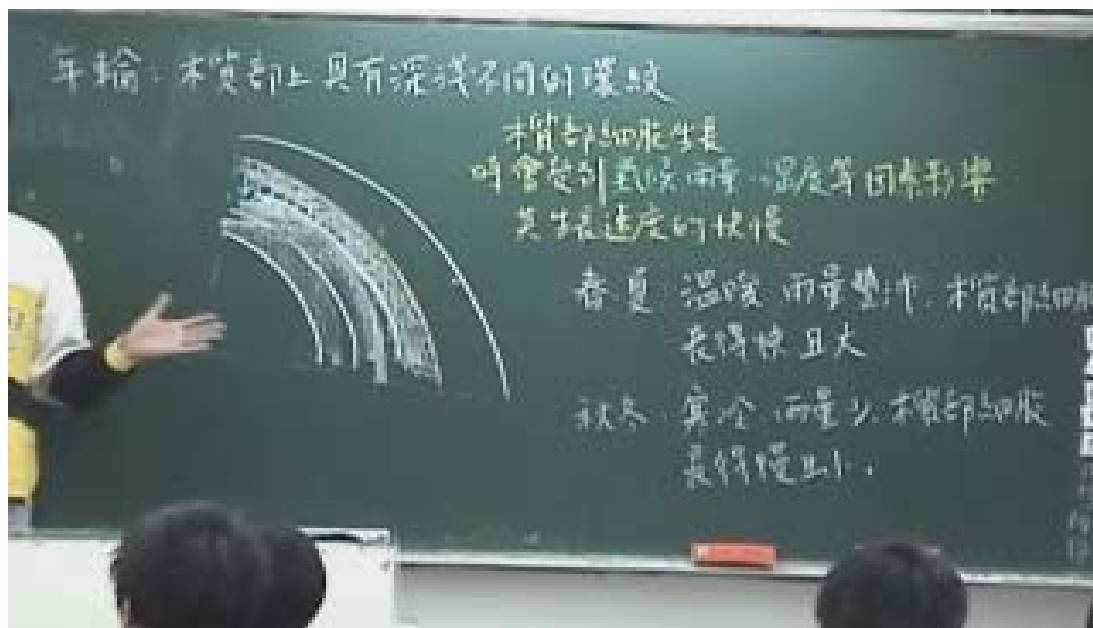 年輪：木質部上具有深淺不同的環紋
木質部細胞生長
時會受到氣候雨量、溫度等因素影響
其生長速度的快慢
春夏 溫暖 雨量豐沛. 木質部細胞
長得快且大
秋冬. 寒冷 雨量少. 木質部細胞
長得慢且小.